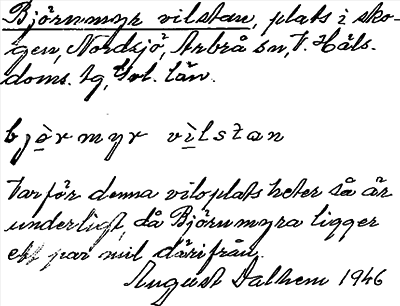 Björnmyr vilstan, plats i sko-
gen, Nordsjö, Arbrå sn, V. Häls.
doms. tg, Gvl. län.
bjòrmyr vìlstan
Varför denna viloplats heter så är
underligt, då Björnmyra ligger
ett par mil därifrån.
August Dalhem 1946